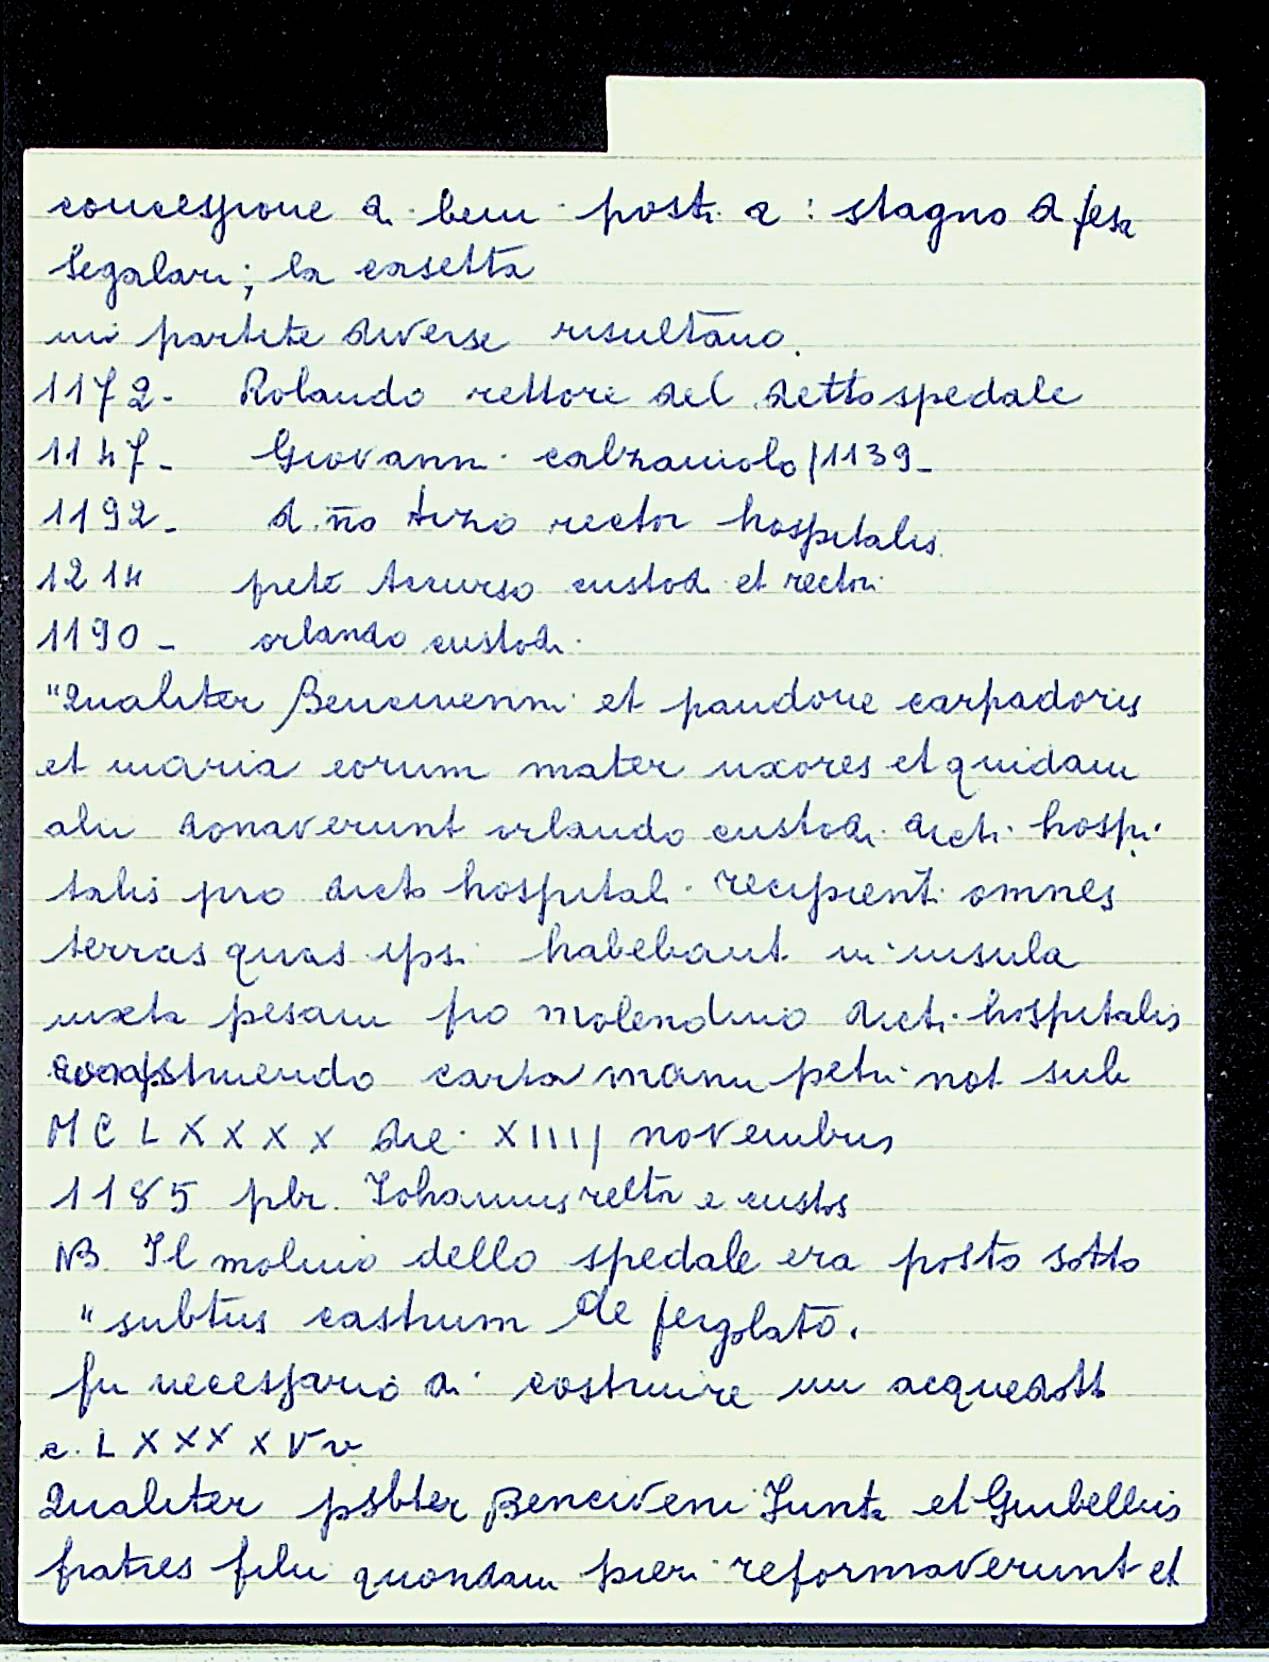 concessione di beni posti a: stagno di
Segalari; la casetta
in partite diverse risultano.
1172- Rolando rettore del detto spedale
1147- Giovanni calzaiolo/1139-
1192- rector hospitalis
1214 custodi et rectori
1190- orlando custodi
"Qualiter Bencivenni et pandone carpadoris
et maria eorum mater uxores et quidam
alii donaverunt orlando custodi dicti hospi
talis pro dicto hospitali recipienti omnes
terras quas ipsi habebant in insula
iuxta pesam pro molendino dicti hospitalis
construendo carta manu petri not sub
MCLXXXX die XIIII novembris
1185 pbr. Iohannes rector e custos
NB. Il molino dello spedale era posto sotto
"subtus castrum de
fu necessario di costruire un acquedott
c. LXXXXV v
Qualiter psbter Benciveni Junta et Guibellus
fratres filii quondam pieri reformaverunt et